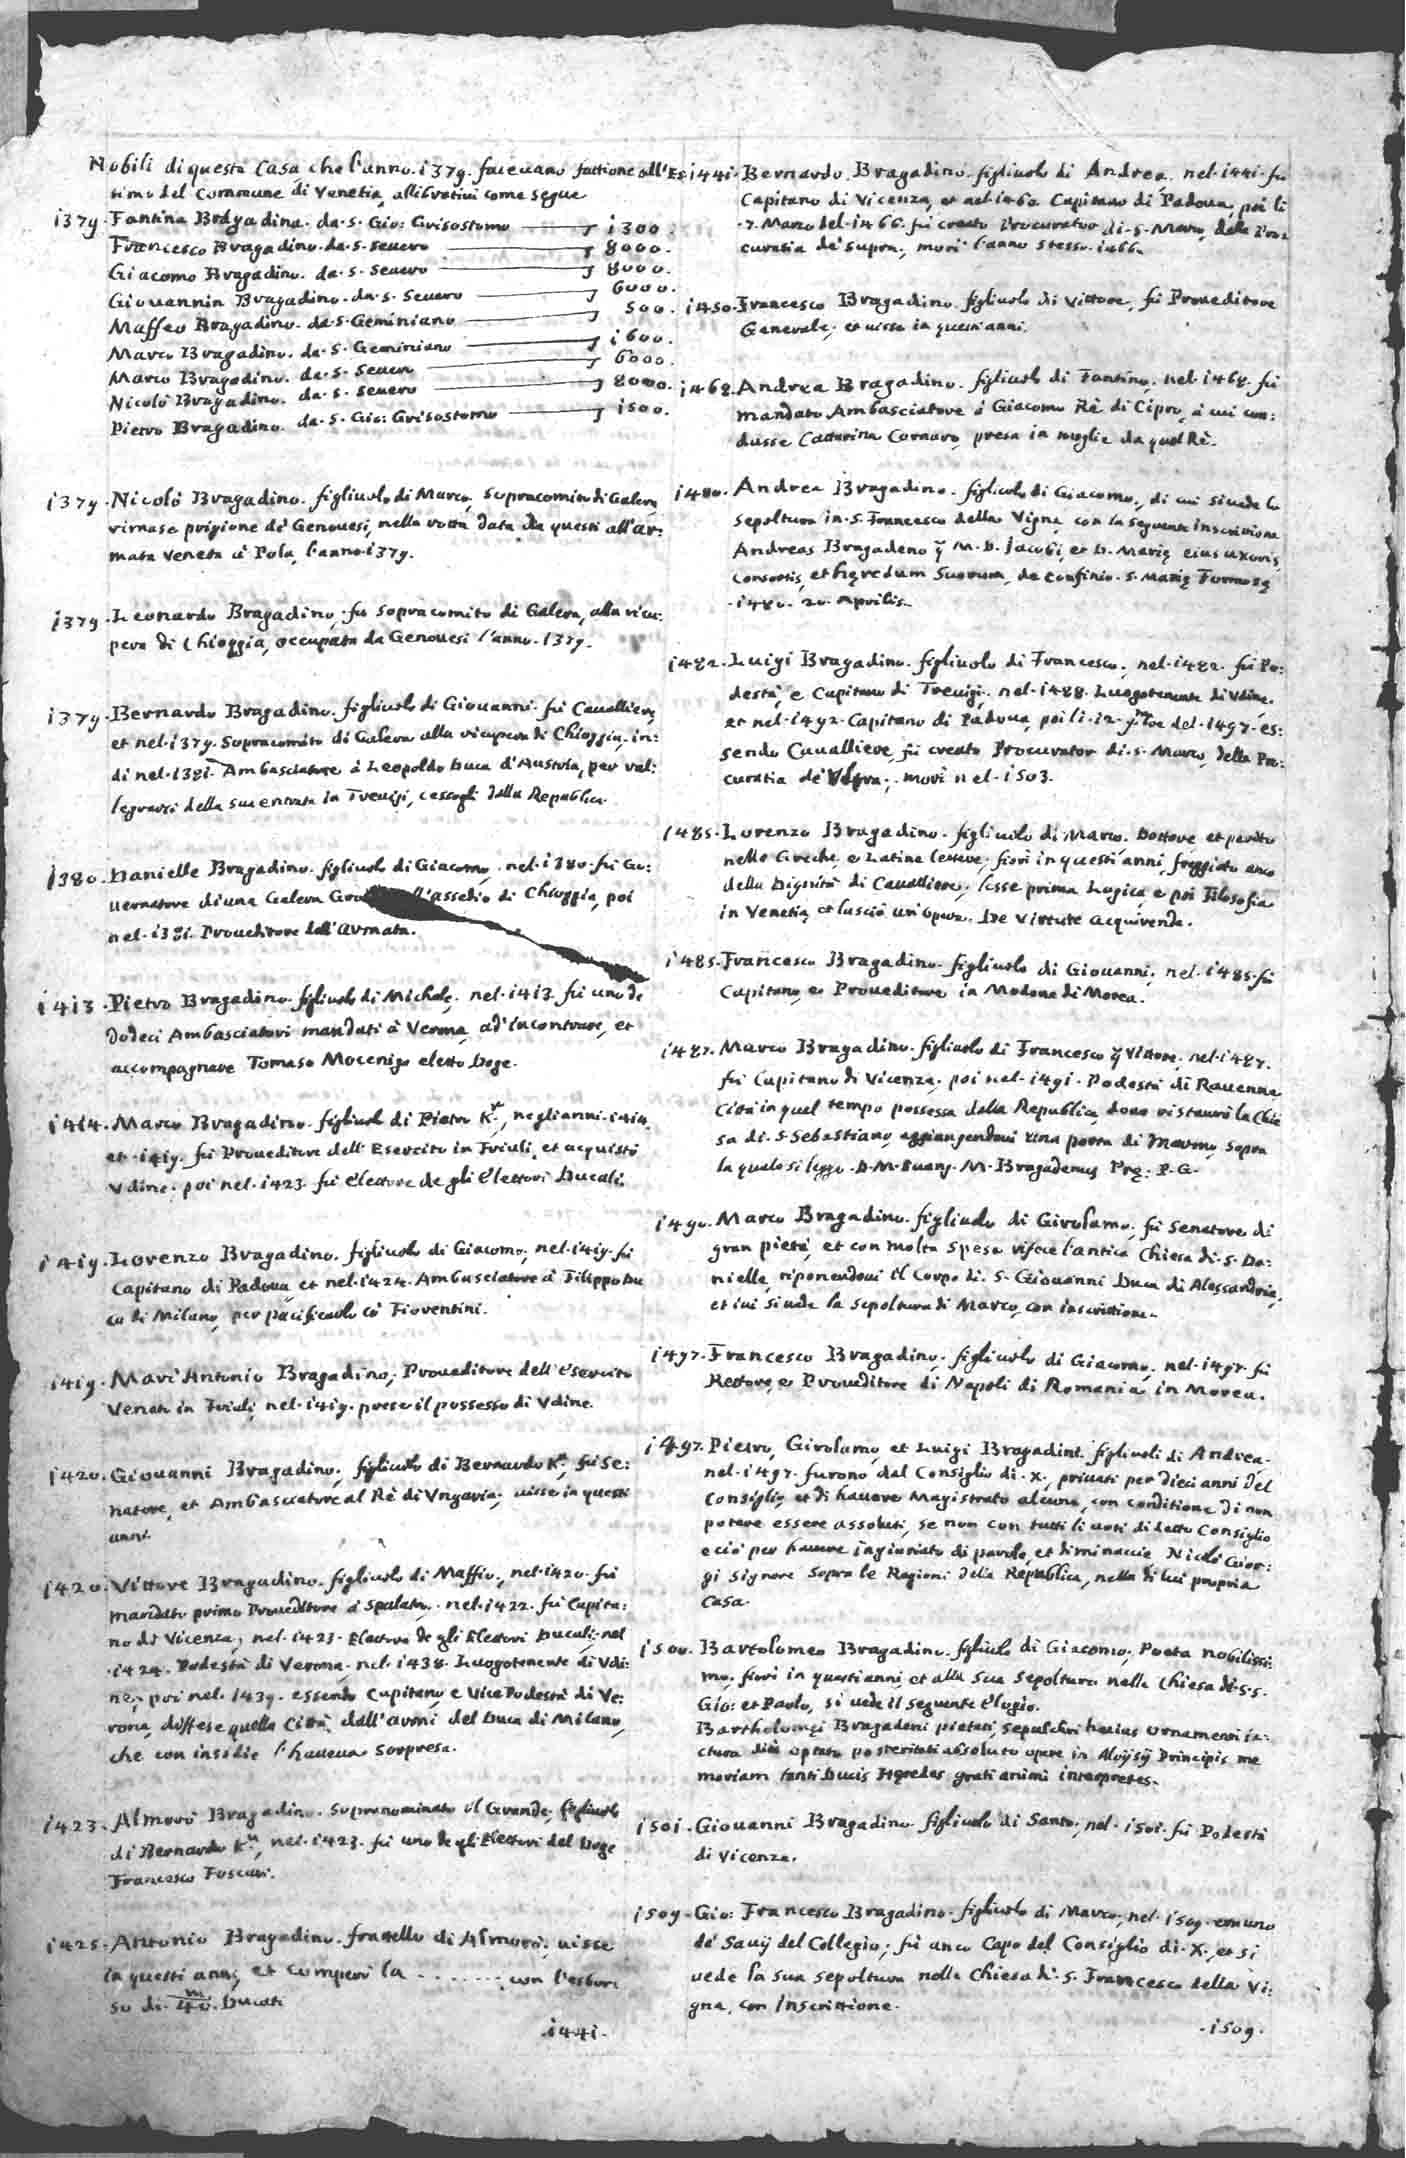 Nobili di questa Casa che l'anno. 1379. faceuano fattione all'Es
timo del Commune di Venetia, allibratiui come segue
1379. Fantina Bragadina. da. S. Gio: Grisostomo 1300.
Francesco Bragadino. da. S. Seuero 8000.
Giacomo Bragadino. da. S. Seuero 8000.
Giouannin Bragadino. da. S. Seuero 6000.
Maffeo Bragadino. da. S. Geminiano 500.
Marco Bragadino. da. S. Geminiano 1600.
Marco Bragadino. da. S. Seuero 6000.
Nicolò Bragadino. da. S. Seuero 8000.
Pietro Bragadino. da. S. Gio: Grisostomo 1500.
1379. Nicolò Bragadino. figliuolo di Marco, Sopracomito di Galera,
rimase prigione de' Genouesi, nella rotta data da questi all'ar:
mata Veneta à Pola, l'anno. 1379.
1379. Leonardo Bragadino, fu sopracomito di Galera, alla ricu:
pera di Chioggia, occupata da Genouesi l'anno. 1379.
1379. Bernardo Bragadino. figliuolo di Giouanni. fù Caualliere,
et nel. 1379. Sopracomito di Galera alla ricupera di Chioggia, in:
di nel. 1381. Ambasciatore à Leopoldo Duca d'Austria, per ral:
legrarsi della sua entrata in Treuigi, cessogli dalla Republica.
1380. Danielle Bragadino. figliuolo di Giacomo, nel. 1380. fù Go:
uernatore di una Galera all'assedio di Chioggia, poi
nel. 1381. Proueditore dell'Armata.
1413. Pietro Bragadino. figliuolo di Michele, nel. 1413. fù uno de
dodeci Ambasciatori mandati à Verona, ad incontrare, et
accompagnare Tomaso Mocenigo eletto Doge.
1414. Marco Bragadino. figliuolo di Pietro K.r, negli anni. 1414.
et. 1419. fù Proueditore dell'Esercito in Friuli, et acquistò
Vdine. poi nel. 1423. fù Elettore de gli Elettori Ducali.
1419. Lorenzo Bragadino. figliuolo di Giacomo, nel. 1419. fù
Capitano di Padoua, et nel. 1424. Ambasciatore à Filippo Du
ca di Milano, per pacificarlo co' Fiorentini.
1419. Marc'Antonio Bragadino, Proueditore dell'Esercito
Veneto in Friuli, nel. 1419. prese il possesso di Vdine.
1420. Giouanni Bragadino, figliuolo di Bernardo K.r, fù Se:
natore, et Ambasciatore al Rè di Vngaria, uisse in questi
anni.
1420. Vittore Bragadino. figliuolo di Maffio, nel. 1420. fù
mandato primo Proueditore à Spalato. nel. 1422. fù Capita:
no di Vicenza, nel. 1423. Elettore de gli Elettori Ducali, nel
.1424. Podestà di Verona. nel. 1438. Luogotenente di Vdi:
ne, poi nel. 1439. essendo Capitano, e Vice Podestà di Ve:
rona, diffese quella Città, dall'armi del Duca di Milano,
che con insidie l'haueua sorpresa.
1423. Almorò Bragadino. sopranominato il Grande, figliuolo
di Bernardo K.r, nel. 1423. fù uno de gli Elettori del Doge
Francesco Foscari.
1425. Antonio Bragadino. fratello di Almorò, uisse
in questi anni, et comperò la ........ con l'esbor:
so di. 40.m Ducati
.1441.
1441. Bernardo Bragadino. figliuolo di Andrea, nel. 1441. fù
Capitano di Vicenza, et nel. 1460. Capitano di Padoua, poi li
.7. Marzo del. 1466. fù creato Procurator di. S. Marco, della Pro:
curatia de' supra, morì l'anno stesso. 1466.
1450. Francesco Bragadino. figliuolo di Vittore, fù Proueditore
Generale, et uisse in questi anni.
1468. Andrea Bragadino. figliuolo di Fantino. nel. 1468. fù
mandato Ambasciatore à Giacomo Rè di Cipro, à cui con:
dusse Cattarina Cornaro, presa in moglie da quel Rè.
1480. Andrea Bragadino. figliuolo di Giacomo, di cui si uede la
sepoltura in. S. Francesco della Vigna, con la seguente inscrittione
Andreas Bragadeno q̃ M. D. Jacobi, et D. Marię eius uxoris,
Consortis, et hęredum Suorum, de confinio. S. Marię Formosę
.1480. 20. Aprilis.
1482. Luigi Bragadino. figliuolo di Francesco, nel. 1482. fù Po:
destà, e Capitano di Treuigi. nel. 1488. Luogotenente di Vdine.
et nel. 1492. Capitano di Padoua, poi li. 12. del. 1497. es:
sendo Caualliere, fù creato Procurator di. S. Marco, della Pro:
curatia de' , morì nel. 1503.
1485. Lorenzo Bragadino. figliuolo di Marco. Dottore, et perito
nelle Greche, e Latine lettere, fiorì in questi anni, freggiato anco
della Dignità di Caualliere, lesse prima Logica, e poi Filosofia
in Venetia, et lasciò un'opera. De Virtute acquirenda.
1485. Francesco Bragadino. figliuolo di Giouanni, nel. 1485. fù
Capitano, e Proueditore in Modone di Morea.
1487. Marco Bragadino. figliuolo di Francesco q̃ Vittore, nel. 1487.
fù Capitano di Vicenza, poi nel. 1491. Podestà di Rauenna
Città in quel tempo possessa dalla Republica, doue ristaurò la Chie
sa di. S. Sebastiano, aggiungendoui una porta di marmo, sopra
la quale si legge. D. M. Euang. M. Bragadenus Prę. P. G.
1490. Marco Bragadino. figliuolo di Girolamo, fù Senatore di
gran pietà, et con molta spesa rifece l'antica Chiesa di. S. Da:
nielle, riponendoui il Corpo di. S. Giouanni Duca di Alessandria,
et iui si uede la sepoltura di Marco, con inscrittione.
1497. Francesco Bragadino. figliuolo di Giacomo, nel. 1497. fù
Rettore, e Proueditore di Napoli di Romania in Morea.
1497. Pietro, Girolamo, et Luigi Bragadini. figliuoli di Andrea.
nel. 1497. furono dal Consiglio di. X. priuati per dieci anni del
Consiglio, et di hauere Magistrato alcuno, con conditione di non
potere essere assoluti, se non con tutti li uoti di detto Consiglio
e ciò per hauere ingiuriato di parole, et di minaccie Nicolò Zor:
gi Signore sopra le Ragioni della Republica, nella di lui propria
Casa.
1500. Bartolomeo Bragadino. figliuolo di Giacomo, Poeta nobilissi:
mo, fiorì in questi anni, et alla sua sepoltura nella Chiesa di. S.S.
Gio: et Paolo, si uede il seguente Elogio.
Bartholomęi Bragadeni pietati, sepulchri huius ornamenti ia:
ctura diù optato posteritati absoluto opere in Aloysij Principis me
moriam tanti Ducis Hęredes grati animi interpretes.
1501. Giouanni Bragadino. figliuolo di Santo, nel. 1501. fù Podestà
di Vicenza.
1509. Gio: Francesco Bragadino. figliuolo di Marco, nel. 1509. era uno
de' Sauij del Collegio, fù anco Capo del Consiglio di. X., et si
uede la sua sepoltura nella Chiesa di. S. Francesco della Vi:
gna, con Inscrittione.
.1509.